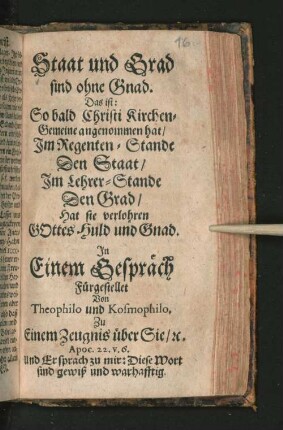 16.
Staat und Grad
sind ohne Gnad.
Das ist:
So bald Christi Kirchen-
Gemeine angenommen hat/
Im Regenten-Stande
Den Staat/
Im Lehrer-Stande
Den Grad/
Hat sie verlohren
GOttes-Huld und Gnad.
In
Einem Gespräch
Fürgestellet
Von
Theophilo und Kosmophilo,
Zu
Einem Zeugnis über Sie/ꝛc.
Apoc. 22. v. 6.
Und Er sprach zu mir: Diese Wort
sind gewiß und warhafftig.